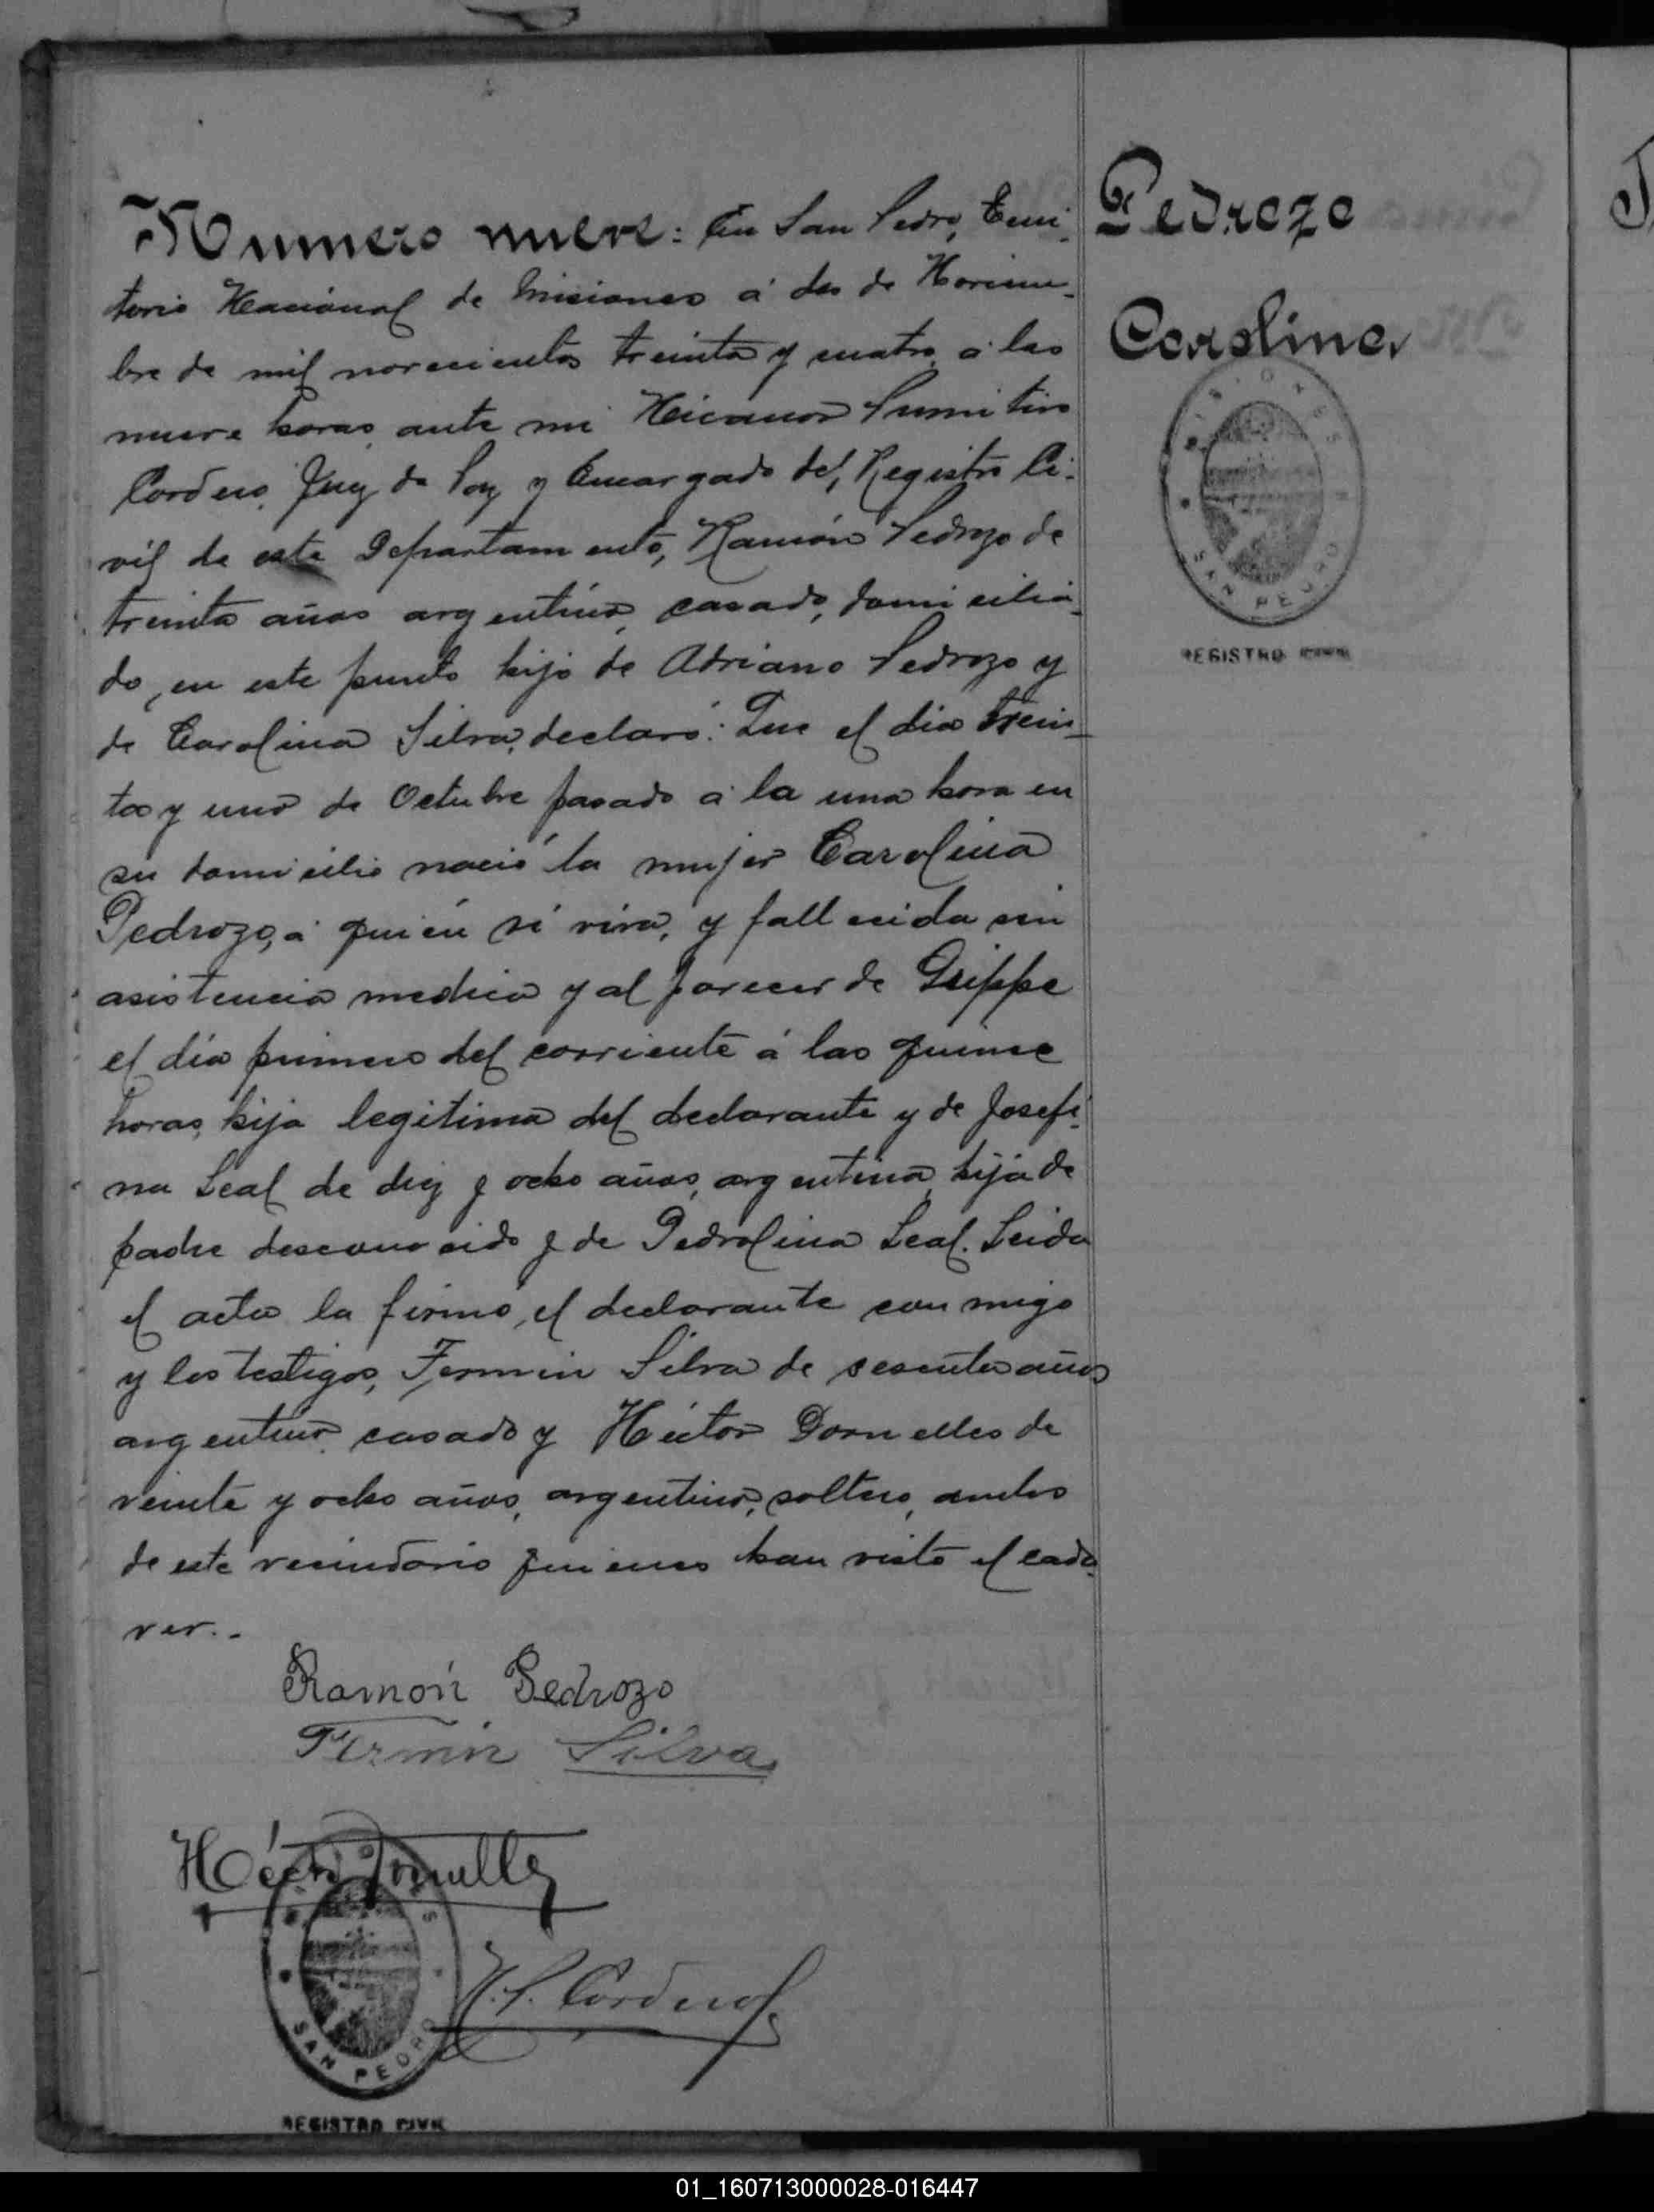 Numero nueve: En San Pedro, Terri-
torio Nacional de Misiones á dos de Noviem-
bre de mil novecientos treinta y cuatro, a las
nueve horas ante mi Nicanor Primitivo
Cordero, Juez de Paz y Encargado del Registro Ci-
vil de este Departamento, Ramón Pedrozo de
treinta años argentino, casado, domicilia-
do, en este punto hijo de Adriano Pedrozo y
de Carolina Silva, declaró: Que el dia trein-
ta y uno de Octubre pasado a la una hora en
su domicilio nació la mujer Carolina
Pedrozo, a quien vi viva, y fallecida sin
asistencia medica y al parecer de Grippe
el día primero del corriente á las quince
horas, hija legitima del declarante y de Josefi-
na Leal de diez y ocho años, argentina, hija de
padre desconocido y de Pedrolina Leal. Leida
el acta la firmó, el declarante con migo
y los testigos, Fermin Silva de sesenta años
argentino casado y Héctor Dornelles de
veinte y ocho años, argentino, soltero, ambos
de este vecindario quienes han visto el cadá-
ver..
Ramón Pedrozo
Fermin Silva
Héctor Dornelles
N. P. Cordero
MISIONES
SAN PEDRO
REGISTRO CIVIL
Pedrozo
Carolina
MISIONES
SAN PEDRO
REGISTRO CIVIL
01_160713000028-016447